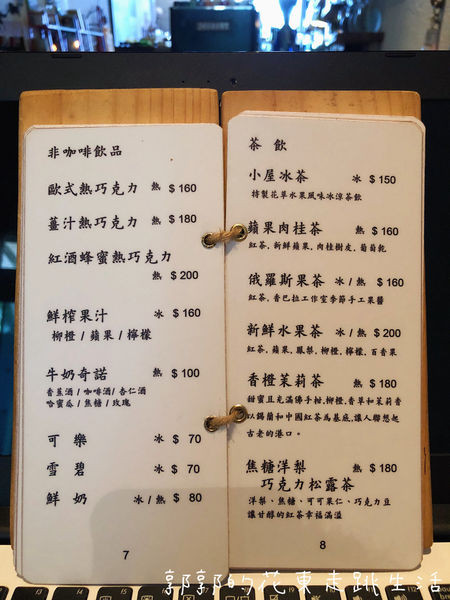 非咖啡飲品
歐式熱巧克力 熱 $160
薑汁熱巧克力 熱 $180
紅酒蜂蜜熱巧克力
熱 $200
鮮榨果汁 冰 $160
柳橙 / 蘋果 / 檸檬
牛奶奇諾 熱 $100
香蕉酒 / 咖啡酒 / 杏仁酒
哈蜜瓜 / 焦糖 / 玫瑰
可樂 冰 $ 70
雪碧 冰 $ 70
鮮奶 冰 / 熱 $ 80
7
茶飲
小屋冰茶 冰 $150
特製花草水果風味冰涼茶飲
蘋果肉桂茶 熱 $160
紅茶, 新鮮蘋果, 肉桂樹皮, 葡萄乾
俄羅斯果茶 冰 / 熱 $160
紅茶, 香巴拉工作室季節手工果醬
新鮮水果茶 冰 / 熱 $200
紅茶, 蘋果, 鳳梨, 柳橙, 檸檬, 百香果
香橙茉莉茶 熱 $180
甜蜜且充滿佛手柑,柳橙,香草和茉莉香
以錫蘭和中國紅茶為基底,讓人聯想起
古老的港口。
焦糖洋梨 熱 $180
巧克力松露茶
洋梨、焦糖、可可果仁、巧克力豆
讓甘醇的紅茶幸福滿溢
8
郭郭的花東走跳生活